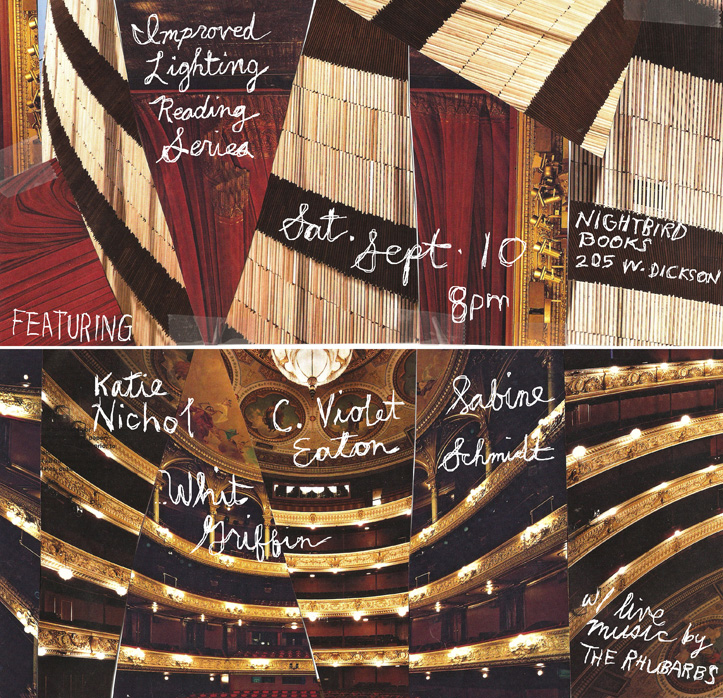 Improved
Lighting
Reading
Series
Sat. Sept. 10
8pm
NIGHTBIRD
BOOKS
205 W. DICKSON
FEATURING
Katie
Nichol
C. Violet
Eaton
Sabine
Schmidt
Whit
Griffin
w/ live
music by
THE RHUBARBS